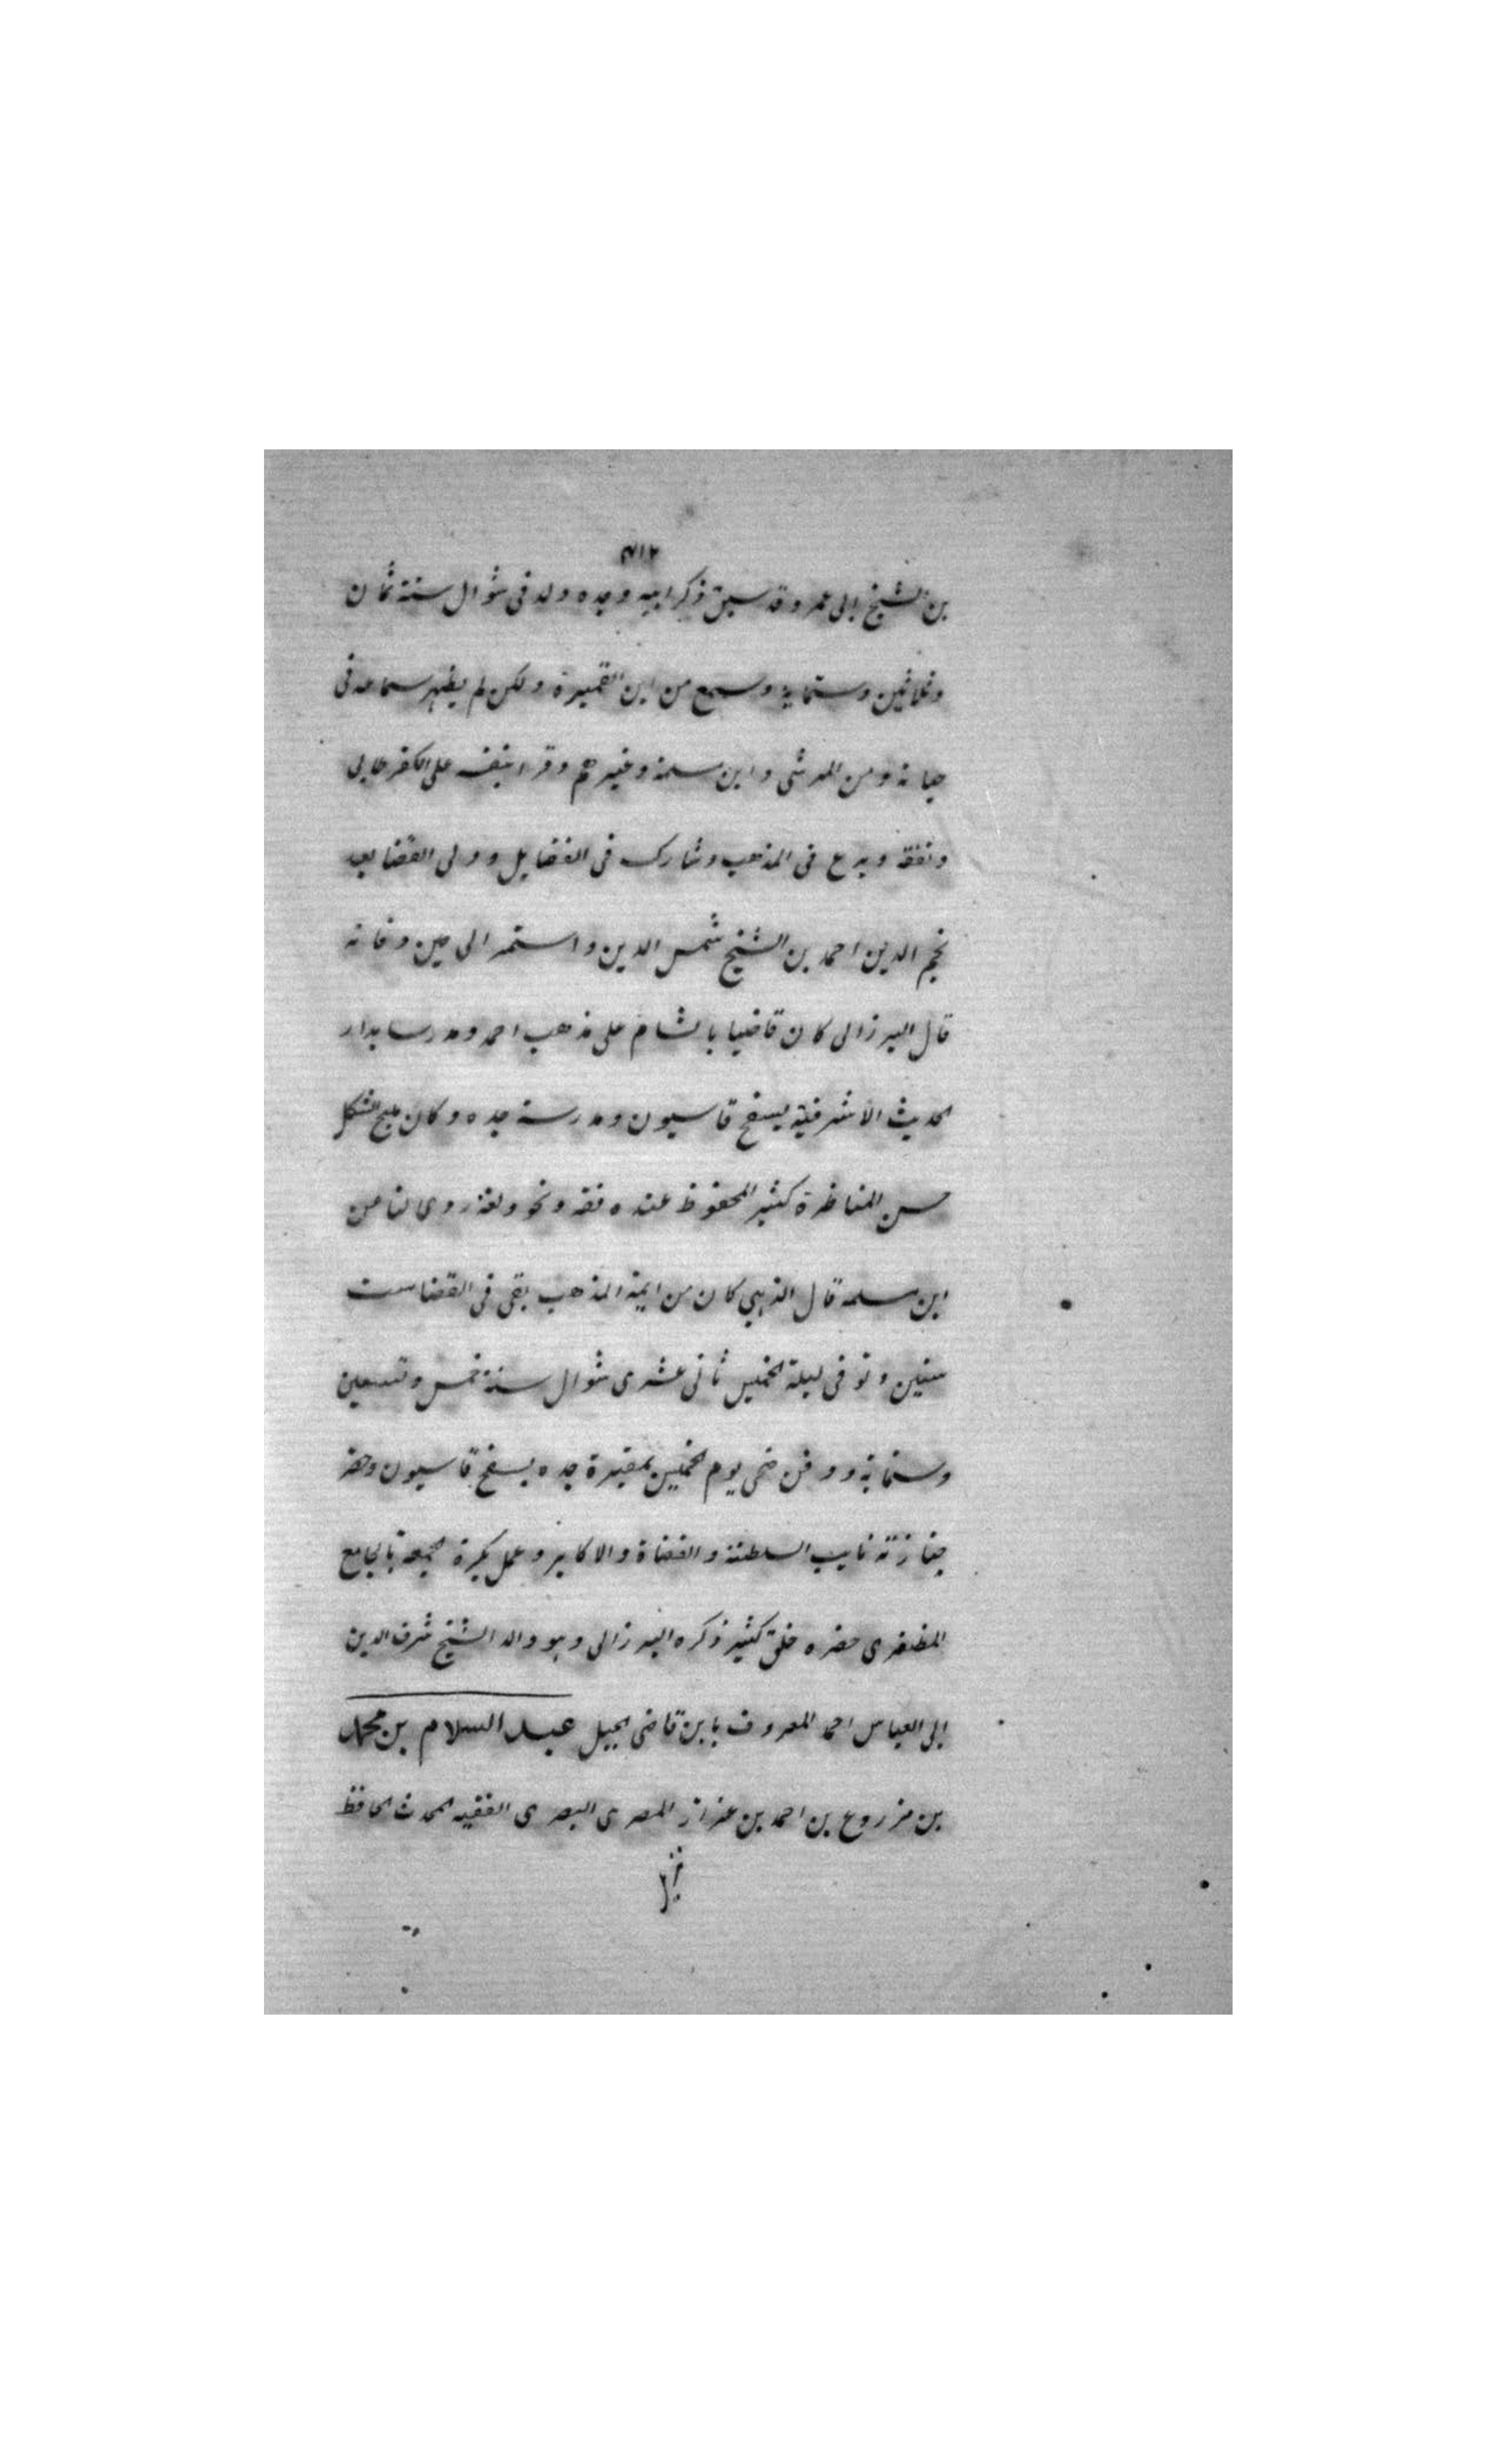 ٧١٢
بن الشيخ ابى عمر وقد سبق ذكر ابيه وجده ولد فى شوال سنة ثمان
وثلاثين وستمايه وسمع من ابن القميرة ولكن لم يظهر سماعه فى
حياته ومن المرسى وابن سلمة وغيرهم وقرا بنفسه على الكفرطابى
وتفقه وبرع فى المذهب وشارك فى الفضايل وولى القضا بعد
نجم الدين احمد بن الشيخ شمس الدين واستمر الى حين وفاته
قال البرزالى كان قاضيا بالشام على مذهب احمد ومدرسا بدار
الحديث الاشرفية بسفح قاسيون ومدرسة جده وكان مليح الشكل
حسن المناظرة كثير المحفوظ عنده فقه ونحو ولغة روى لنا عن
ابن سلمه قال الذهبي كان من ايمة المذهب بقى فى القضا ست
سنين وتوفى ليلة الخميس ثانى عشرى شوال سنة خمس وتسعين
وستمائة ودفن ضحى يوم الخميس بمقبرة جده بسفح قاسيون وحضر
جنازته نايب السلطنة والقضاة والاكابر وعمل بكرة الجمعة بالجامع
المظفرى حضره خلق كثير ذكره البرزالى وهو والد الشيخ شرف الدين
ابى العباس احمد المعروف بابن قاضى الجبل عبد السلام بن محمد
بن مزروع بن احمد بن عزاز المصرى البصرى الفقيه المحدث الحافظ